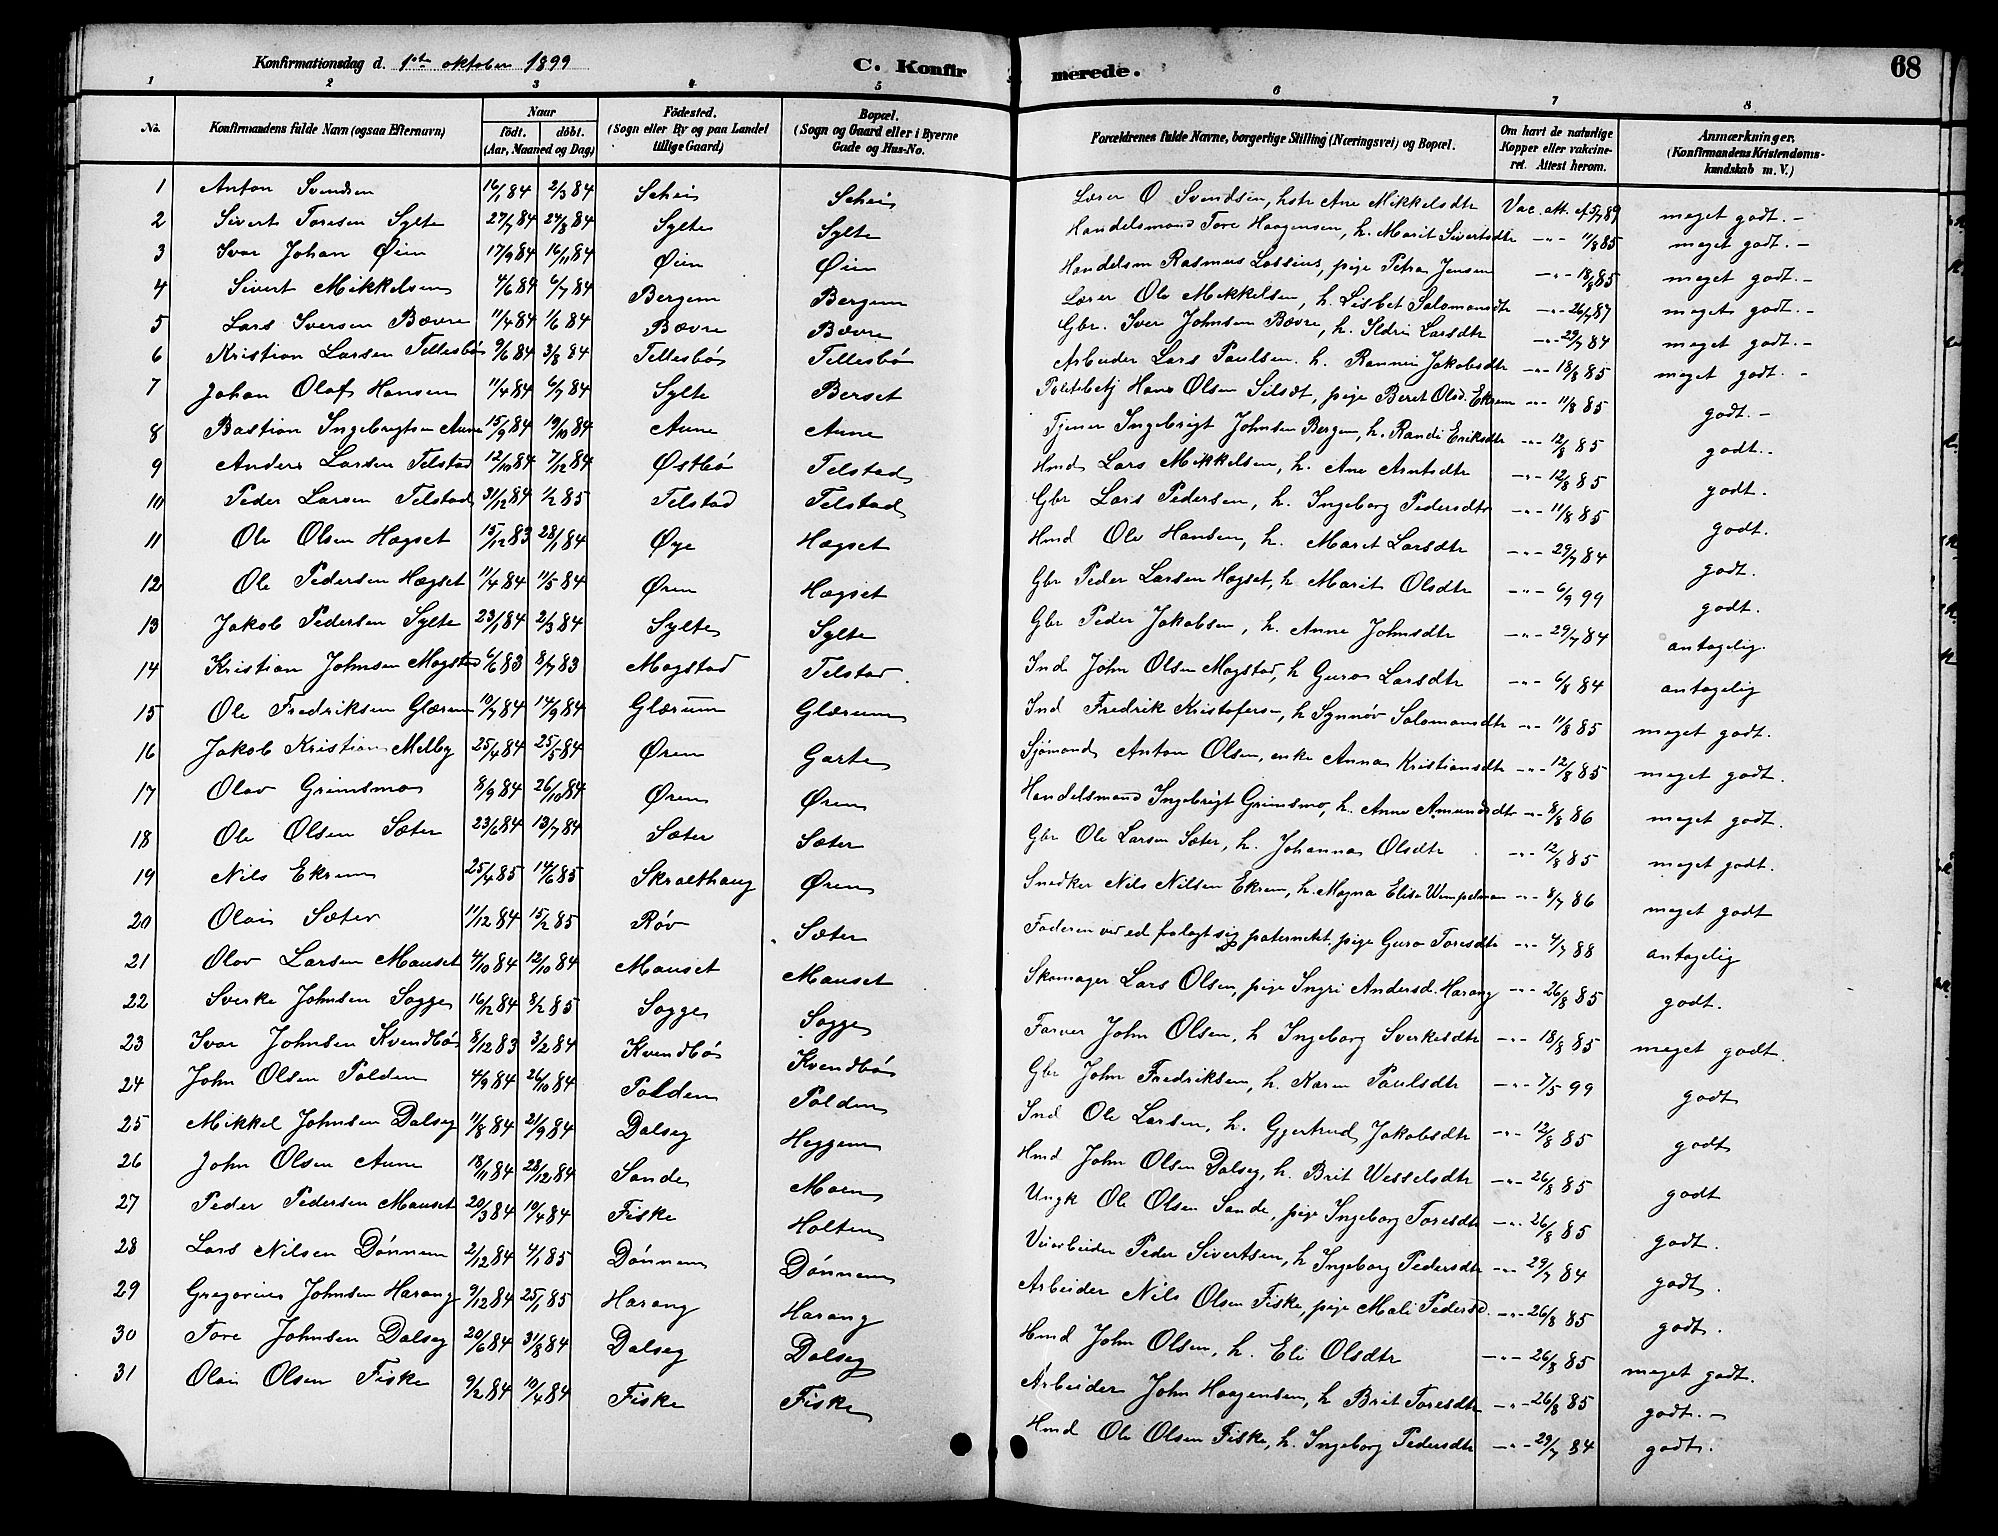 Konfirmationsdag d. 1ste oktober 1899 C. Konfirmerede. 68
1 2 3 4 5 6 7 8
No. Konfirmandens fulde Navn (ogsaa Efternavn) Naar født. døbt. (Aar, Maaned og Dag) Fødested. (Sogn eller By og paa Landet tillige Gaard) Bopæl. (Sogn og Gaard eller i Byerne Gade og Hus-No. Forældrenes fulde Navne, borgerlige Stilling (Næringsvei) og Bopæl. Om havt de naturlige Kopper eller vakcineret. Attest herom. Anmærkninger, (Konfirmandens Kristendomskundskab m. V.)
1 Anton Svendsen 16/1 84 2/3 84 Schei Schei Lærer O Svendsen, hstr Ane Mikkelsdtr Vac. att. af 5/7 89 meget godt. -
2 Sivert Toresen Sylte 27/7 84 24/8 84 Sylte Sylte Handelsmand Tore Haagensen, h. Marit Sivertsdtr -"- 11/8 85 meget godt. -
3 Ivar Johan Øien 17/9 84 16/11 84 Øien Øien Handelsm Rasmus Lossius, pige Petra Jensen -"- 18/8 85 meget godt. -
4 Sivert Mikkelsen 4/6 84 6/7 84 Bergem Bergem Lærer Ole Mikkelsen, h. Lisbet Salomonsdtr -"- 26/7 87 meget godt. -
5 Lars Iversen Bævre 11/4 84 1/6 84 Bævre Bævre Gbr. Iver Johnsen Bævre, h. Ildri Larsdtr -"- 29/7 84 meget godt. -
6 Kristian Larsen Tellesbø 9/6 84 3/8 84 Tellesbø Tellesbø Arbeider Lars Paulsen h. Rannei Jakobsdtr -"- 18/8 85 meget godt. -
7 Johan Olaf Hansen 11/4 84 6/7 84 Sylte Berset Politibetj Hans Olsen Silsdt, pige Beret Olsd. Ekrem -"- 11/8 85 godt. -
8 Bastian Ingebrigtsen Aune 15/9 84 19/10 84 Aune Aune Tjener Ingebrigt Johnsen Bergem, h. Randi Eriksdtr -"- 12/8 85 godt. -
9 Anders Larsen Telstad 12/10 84 7/12 84 Østbø Telstad Hmd Lars Mikkelsen, h. Ane Arntsdtr -"- 12/8 85 godt.
10 Peder Larsen Telstad 31/12 84 1/2 85 Telstad Telstad Gbr Lars Pedersen, h. Ingeborg Pedersdtr -"- 11/8 85 godt.
11 Ole Olsen Hægset 15/12 83 28/1 84 Øye Hægset Hmd Ole Hansen, h. Marit Larsdtr -"- 29/7 84 godt.
12 Ole Pedersen Hægset 11/4 84 11/5 84 Øren Hægset Gbr Peder Larsen Hægset, h Marit Olsdtr -"- 6/9 99 godt.
13 Jakob Pedersen Sylte 23/1 84 2/3 84 Sylte Sylte Gbr Peder Jakobsen, h. Anne Johnsdtr -"- 29/7 84 antagelig.
14 Kristian Johnsen Mogstad 6/6 83 8/7 83 Mogstad Telstad. Ind John Olsen Mogstad, h Guro Larsdtr -"- 6/8 84 antagelig
15 Ole Fredriksen Glærem 10/7 84 14/9 84 Glærum Glærum Ind Fredrik Kristofersen, h Synnøv Salomonsdtr -"- 11/8 85 meget godt.
16 Jakob Kristian Melby 25/4 84 25/5 84 Øren Garte Sjømand Anton Olsen, enke Anna Kristiansdtr -"- 12/8 85 meget godt.
17 Olav Grimsmo 8/9 84 26/10 84 Øren Øren Handelsmand Ingebrigt Grimsmo, h. Anne Amundsdtr -"- 8/8 86 meget godt.
18 Ole Olsen Sæter 23/6 84 13/7 84 Sæter Sæter Gbr Ole Larsen Sæter, h. Johanna Olsdtr -"- 12/8 85 meget godt.
19 Nils Ekrem 25/4 85 14/6 85 Skralthaug Øren Snedker Nils Nilsen Ekrem, h. Magna Elise Wimpelman -"- 8/7 86 meget godt
20 Olai Sæter 11/12 84 15/2 85 Røv Sæter Faderen ved ed fralagt sig paternitet, pige Guro Toresdtr -"- 4/7 88 antagelig
21 Olav Larsen Mauset 4/10 84 12/10 84 Mauset Mauset Skomager Lars Olsen, pige Ingri Andersd. Harang -"- 26/8 85 godt.
22 Sverke Johnsen Sogge 16/12 84 8/2 85 Sogge Sogge Farver John Olsen, h Ingeborg Sverkesdtr -"- 18/8 85 meget godt.
23 Ivar Johnsen Kvendbø 8/12 83 3/2 84 Kvendbø Kvendbø Gbr John Fredriksen, h. Karen Paulsdtr -"- 7/5 99 godt
24 John Olsen Polden 4/9 84 26/10 84 Polden Polden Ind Ole Larsen, h. Gjertrud Jakobsdtr -"- 12/8 85 godt
25 Mikkel Johnsen Dalseg 11/8 84 21/9 84 Dalseg Heggem Hmd John Olsen Dalseg, h. Brit Wesselsdtr -"- 26/8 85 godt
26 John Olsen Aune 18/11 84 28/12 84 Sande Moen Ungk Ole Olsen Sande, pige Ingeborg Toresdtr -"- 26/8 85 godt.
27 Peder Pedersen Mauset 20/3 84 10/4 84 Fiske Holten Veiarbeider Peder Sivertsen, h Ingeborg Pedersdtr -"- 29/7 84 godt.
28 Lars Nilsen Dønnem 2/12 84 4/1 85 Dønnem Dønnem Arbeider Nils Olsen Fiske, pige Mali Pedersd. -"- 26/8 85 godt.
29 Gregorius Johnsen Harang 9/12 84 25/1 85 Harang Harang Hmd John Olsen, h. Eli Olsdtr -"- 26/8 85 meget godt.
30 Tore Johnsen Dalseg 20/6 84 31/8 84 Dalseg Dalseg Arbeider John Haagensen, h Brit Toresdtr -"- 26/8 85 godt. -
31 Olai Olsen Fiske 9/2 84 10/4 84 Fiske Fiske Hmd Ole Olsen Fiske, h. Ingeborg Pedersdtr -"- 29/7 84 godt.